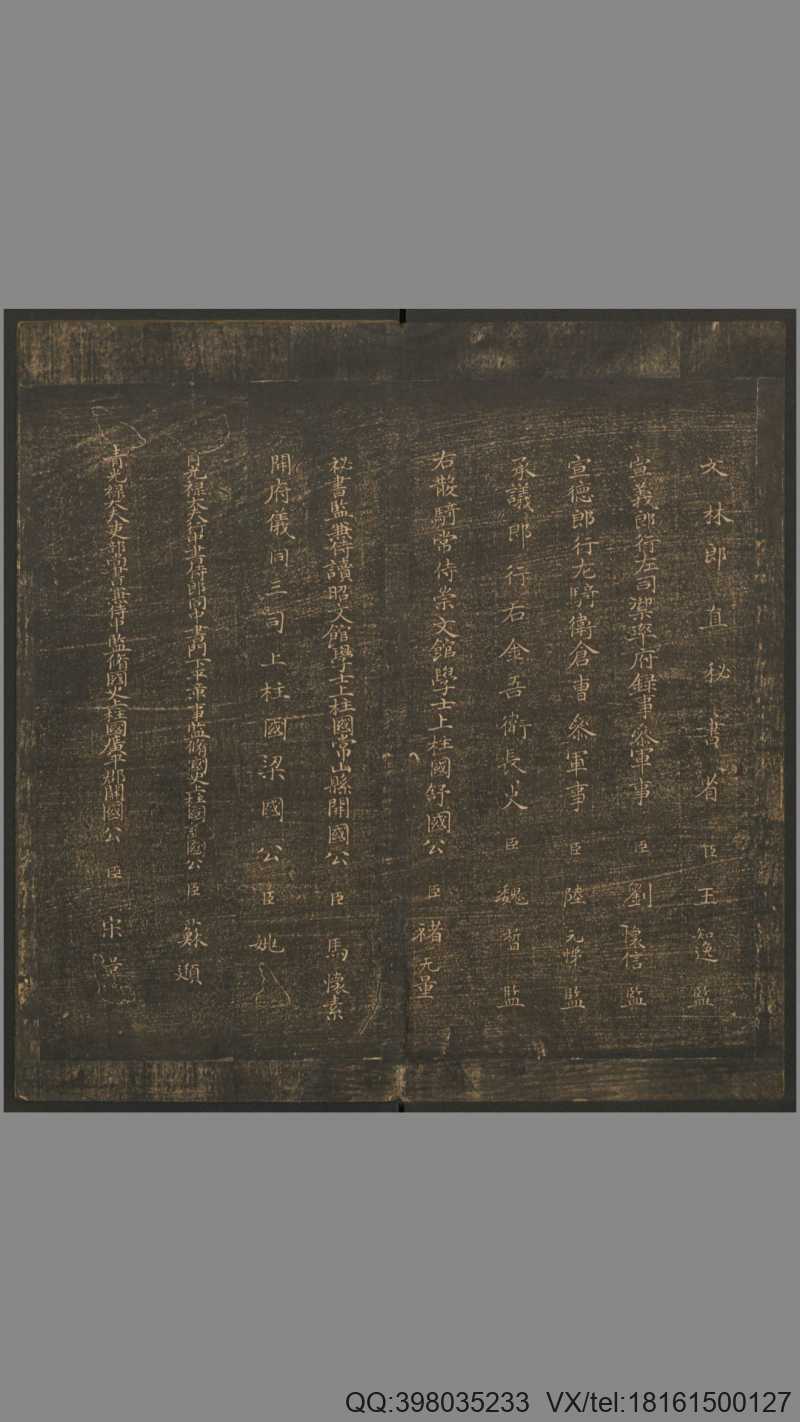 文林郎直秘書省臣王知逸監
宣義郎行左司禦率府録事叅軍事臣劉懷信監
宣德郎行左驍衛倉曹叅軍事臣陸元悌監
承議郎行右金吾衛長史臣魏哲監
右散騎常侍崇文館學士上柱國舒國公臣褚无量
祕書監兼侍讀昭文館學士上柱國常山縣開國公臣馬懷素
開府儀同三司上柱國梁國公臣姚
光祿大夫 書侍郎同中書門下平章事監脩國史上柱國 國公臣蘇頲
光祿大夫吏部尚書兼侍中監脩國史上柱國廣平郡開國公臣宋
QQ:398035233 VX/tel:18161500127